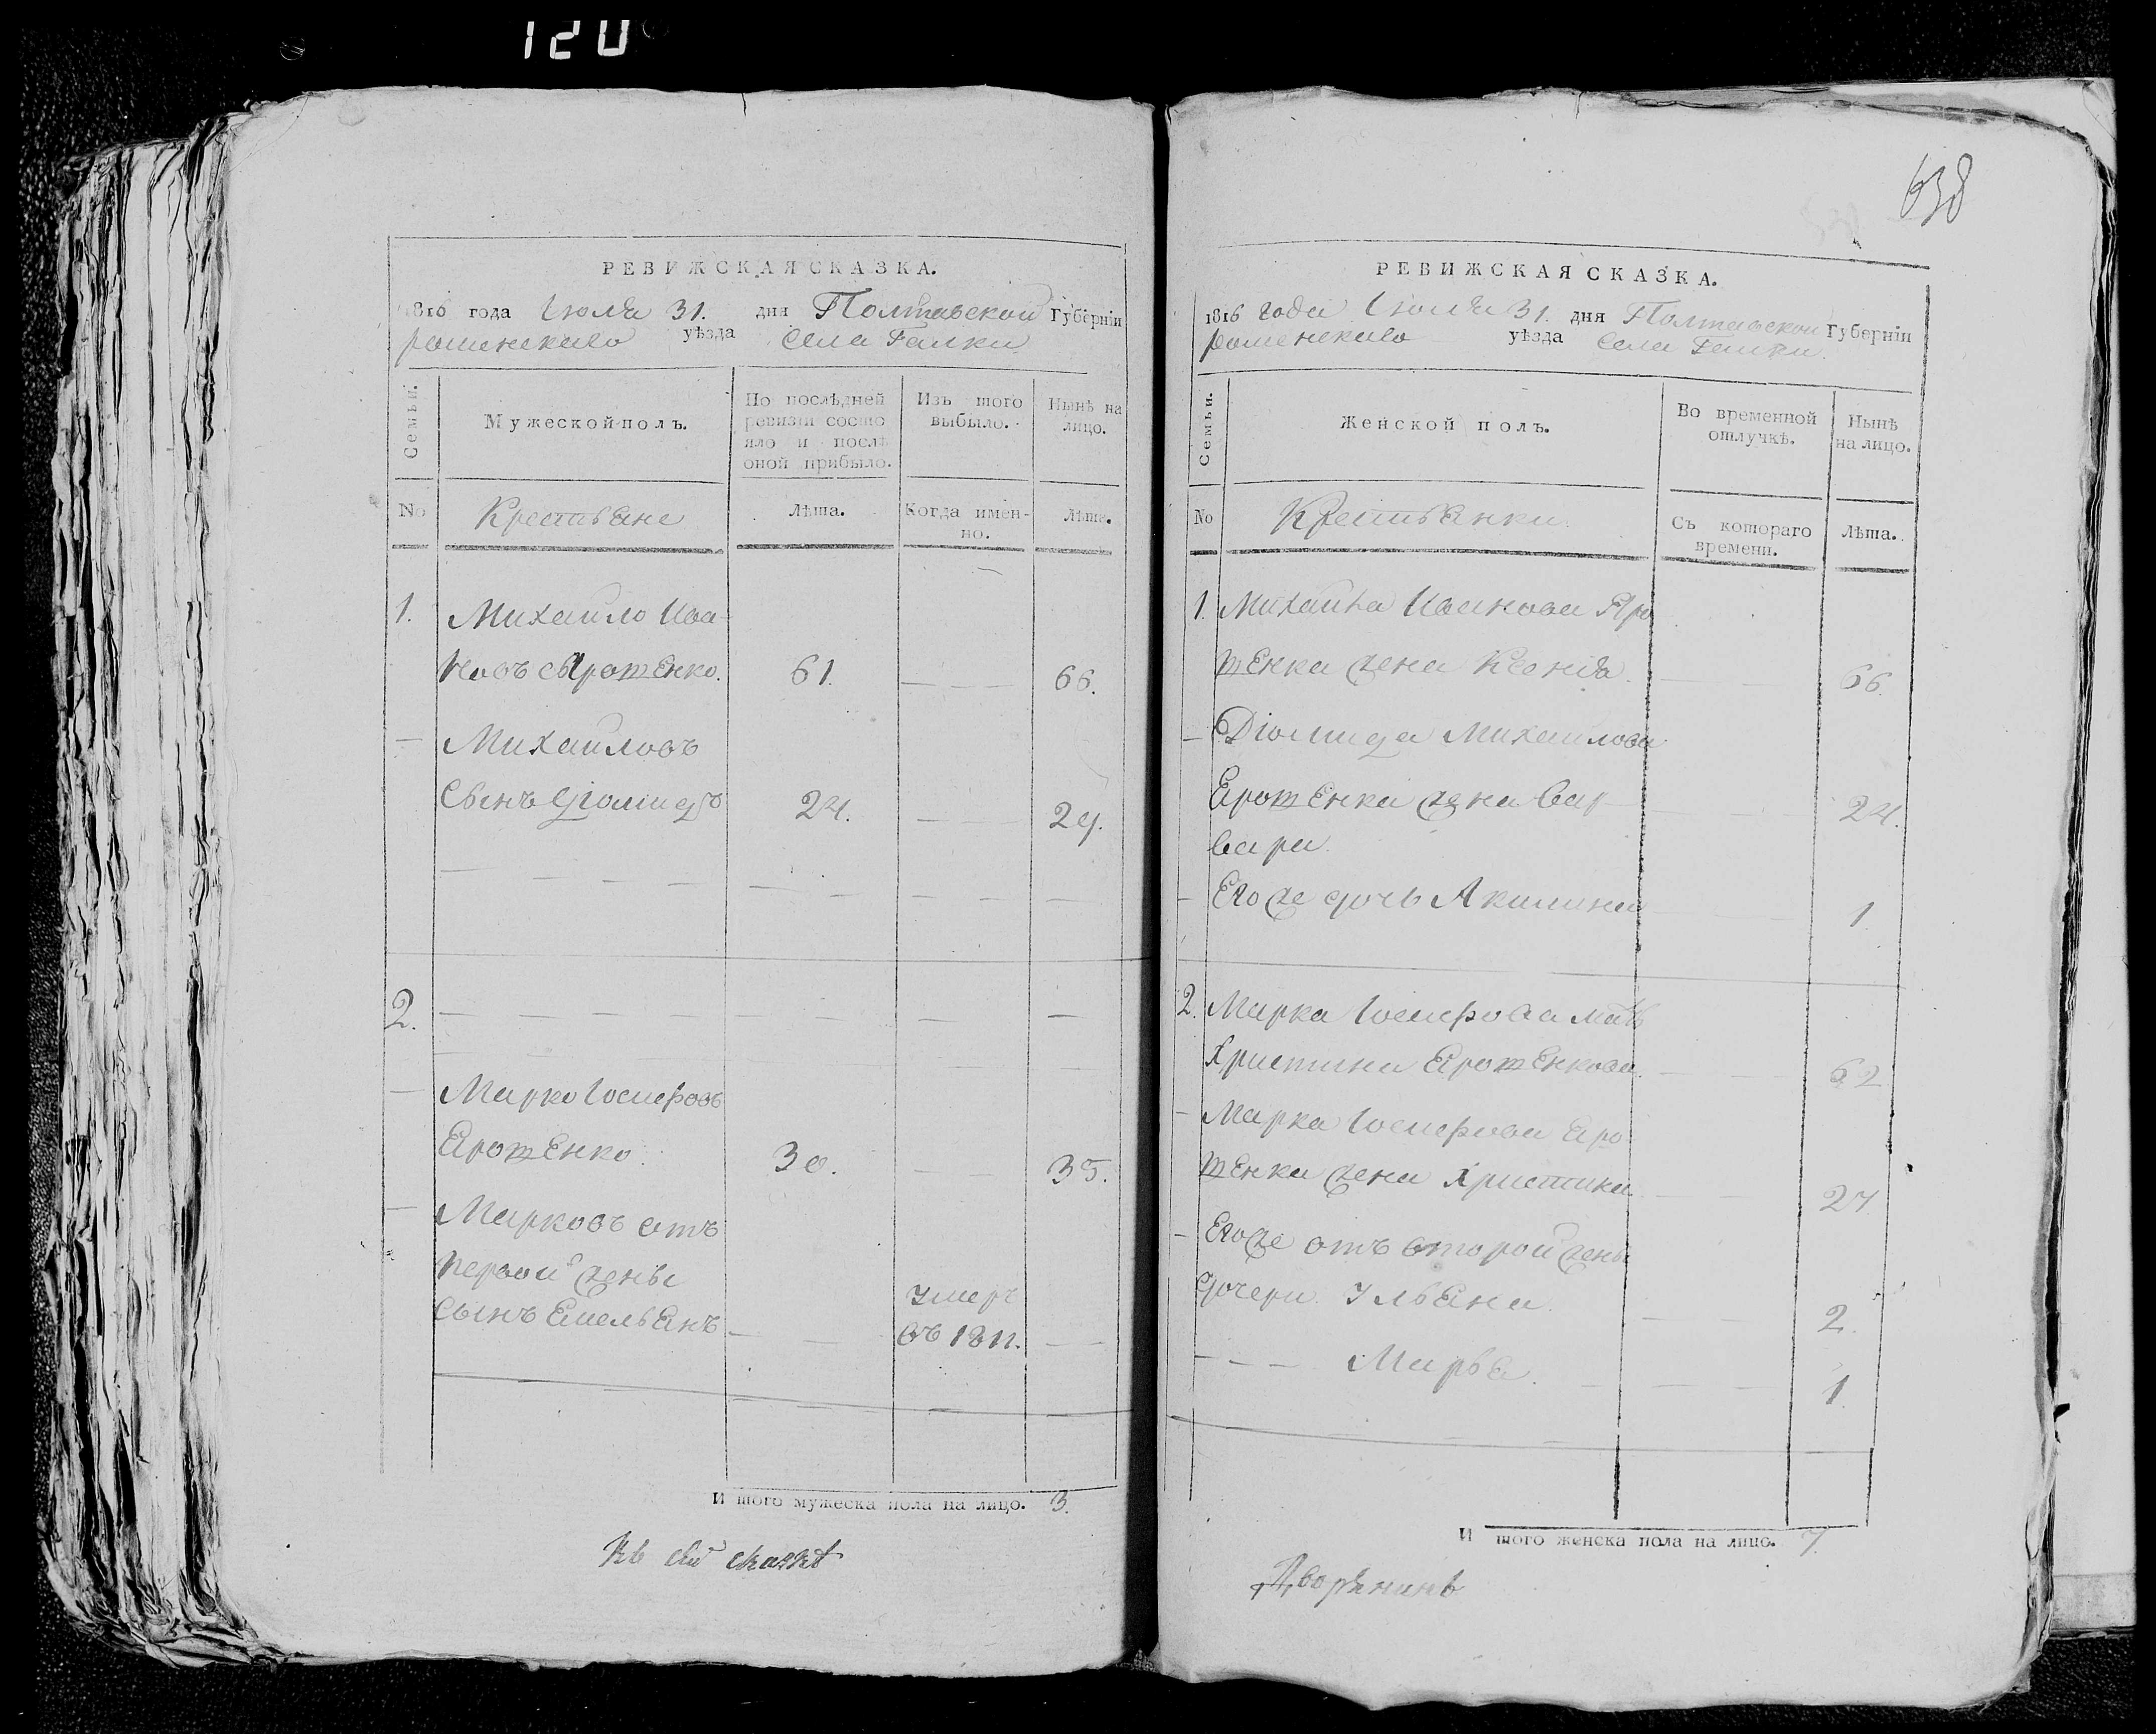 120
638
РЕВИЖСКАЯ СКАЗКА.
1816 года Іюля 31. дня Полтавской Губерніи
роменскаго уѣзда села Галки
Семьи.
Мужеской полъ.
По послѣдней ревизіи состояло и послѣ оной прибыло.
Изъ того выбыло.
Нынѣ на лицо.
No
Крестьяне
Лѣта.
Когда именно.
Лѣта.
1. Михайло Ива-
новъ сЯрошенко. 61. — — 66.
— Михайловъ
Сынъ Діомидъ 24. — — 29.
2.
— Марко Іосифовъ
Ярошенко. 30. — — 35.
— Марковъ отъ
первой жены
умеръ
сынъ Емельянъ — — въ 1811. —
И того мужеска пола на лицо. 3.
Къ сей сказкѣ
РЕВИЖСКАЯ СКАЗКА.
1816 года Іюля 31. дня Полтавской Губерніи
роменскаго уѣзда села Галки.
Семьи.
Женской полъ.
Во временной отлучкѣ.
Нынѣ на лицо.
No
Крестьянки.
Съ котораго времени.
Лѣта.
1. Михайла Иванова Яро
шенка жена Ксенія. — — 66.
— Діомида Михайлова
Ярошенка жена Вар — — 24.
вара.
— Его же дочь Акилина — — 1
2. Марка Іосифова мать
Христина Ярошенкова. — — 62
— Марка Іосифова Яро-
шенка жена Христина — — 27
— Его же отъ второй жены
дочери Ульяна. — — 2.
— — — Марья. — — 1.
И того женска пола на лицо. 7.
Дворянинъ